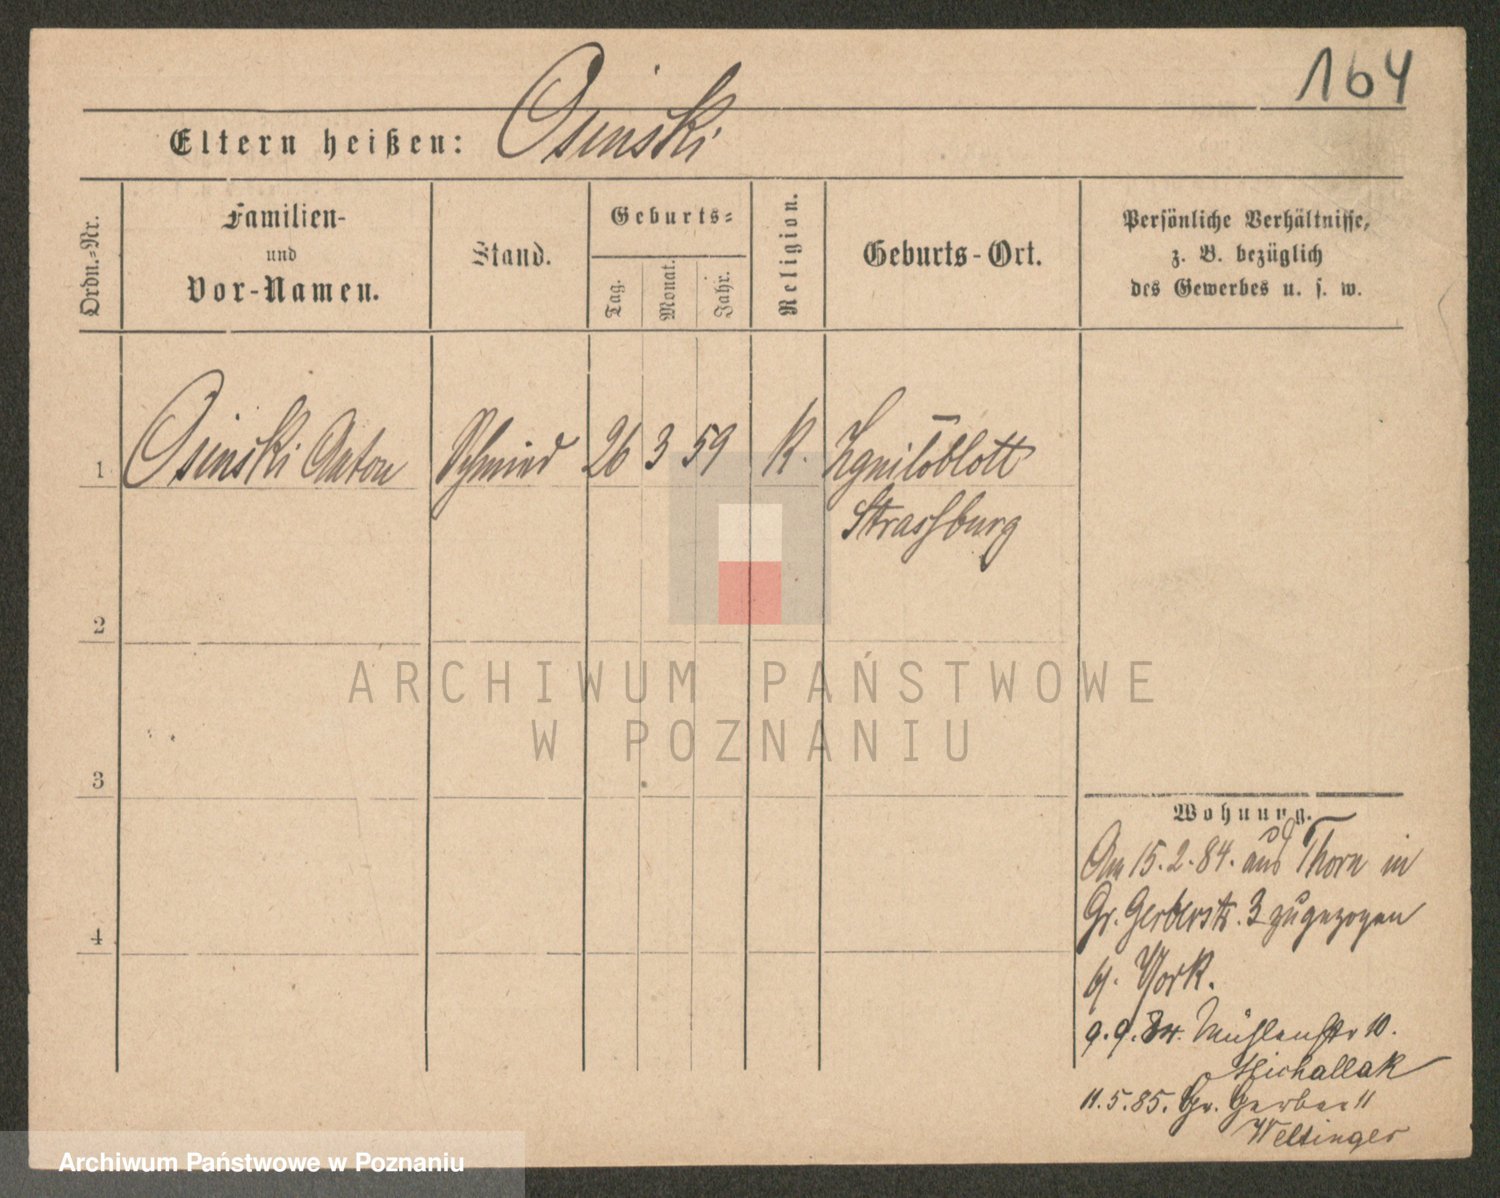 164
Eltern heißen: Osinski
Ordn.-Nr.
Familien-
und
Vor-Namen.
Stand.
Geburts-
Tag.
Monat.
Jahr.
Religion.
Geburts-Ort.
Persönliche Verhältnisse,
z. B. bezüglich
des Gewerbes u. s. w.
1 Osinski Anton Schmied 26 3 59 K. Zgniloblott
Strassburg
2
3
4
Wohnung.
Am 15.2.84. aus Thorn in
Gr. Gerberstr. 3 zugezogen
b. York.
9.9.84. Mühlenstr 10.
Michallak
11.5.85. Gr. Gerber 11
Weltinger
ARCHIWUM PAŃSTWOWE
W POZNANIU
Archiwum Państwowe w Poznaniu